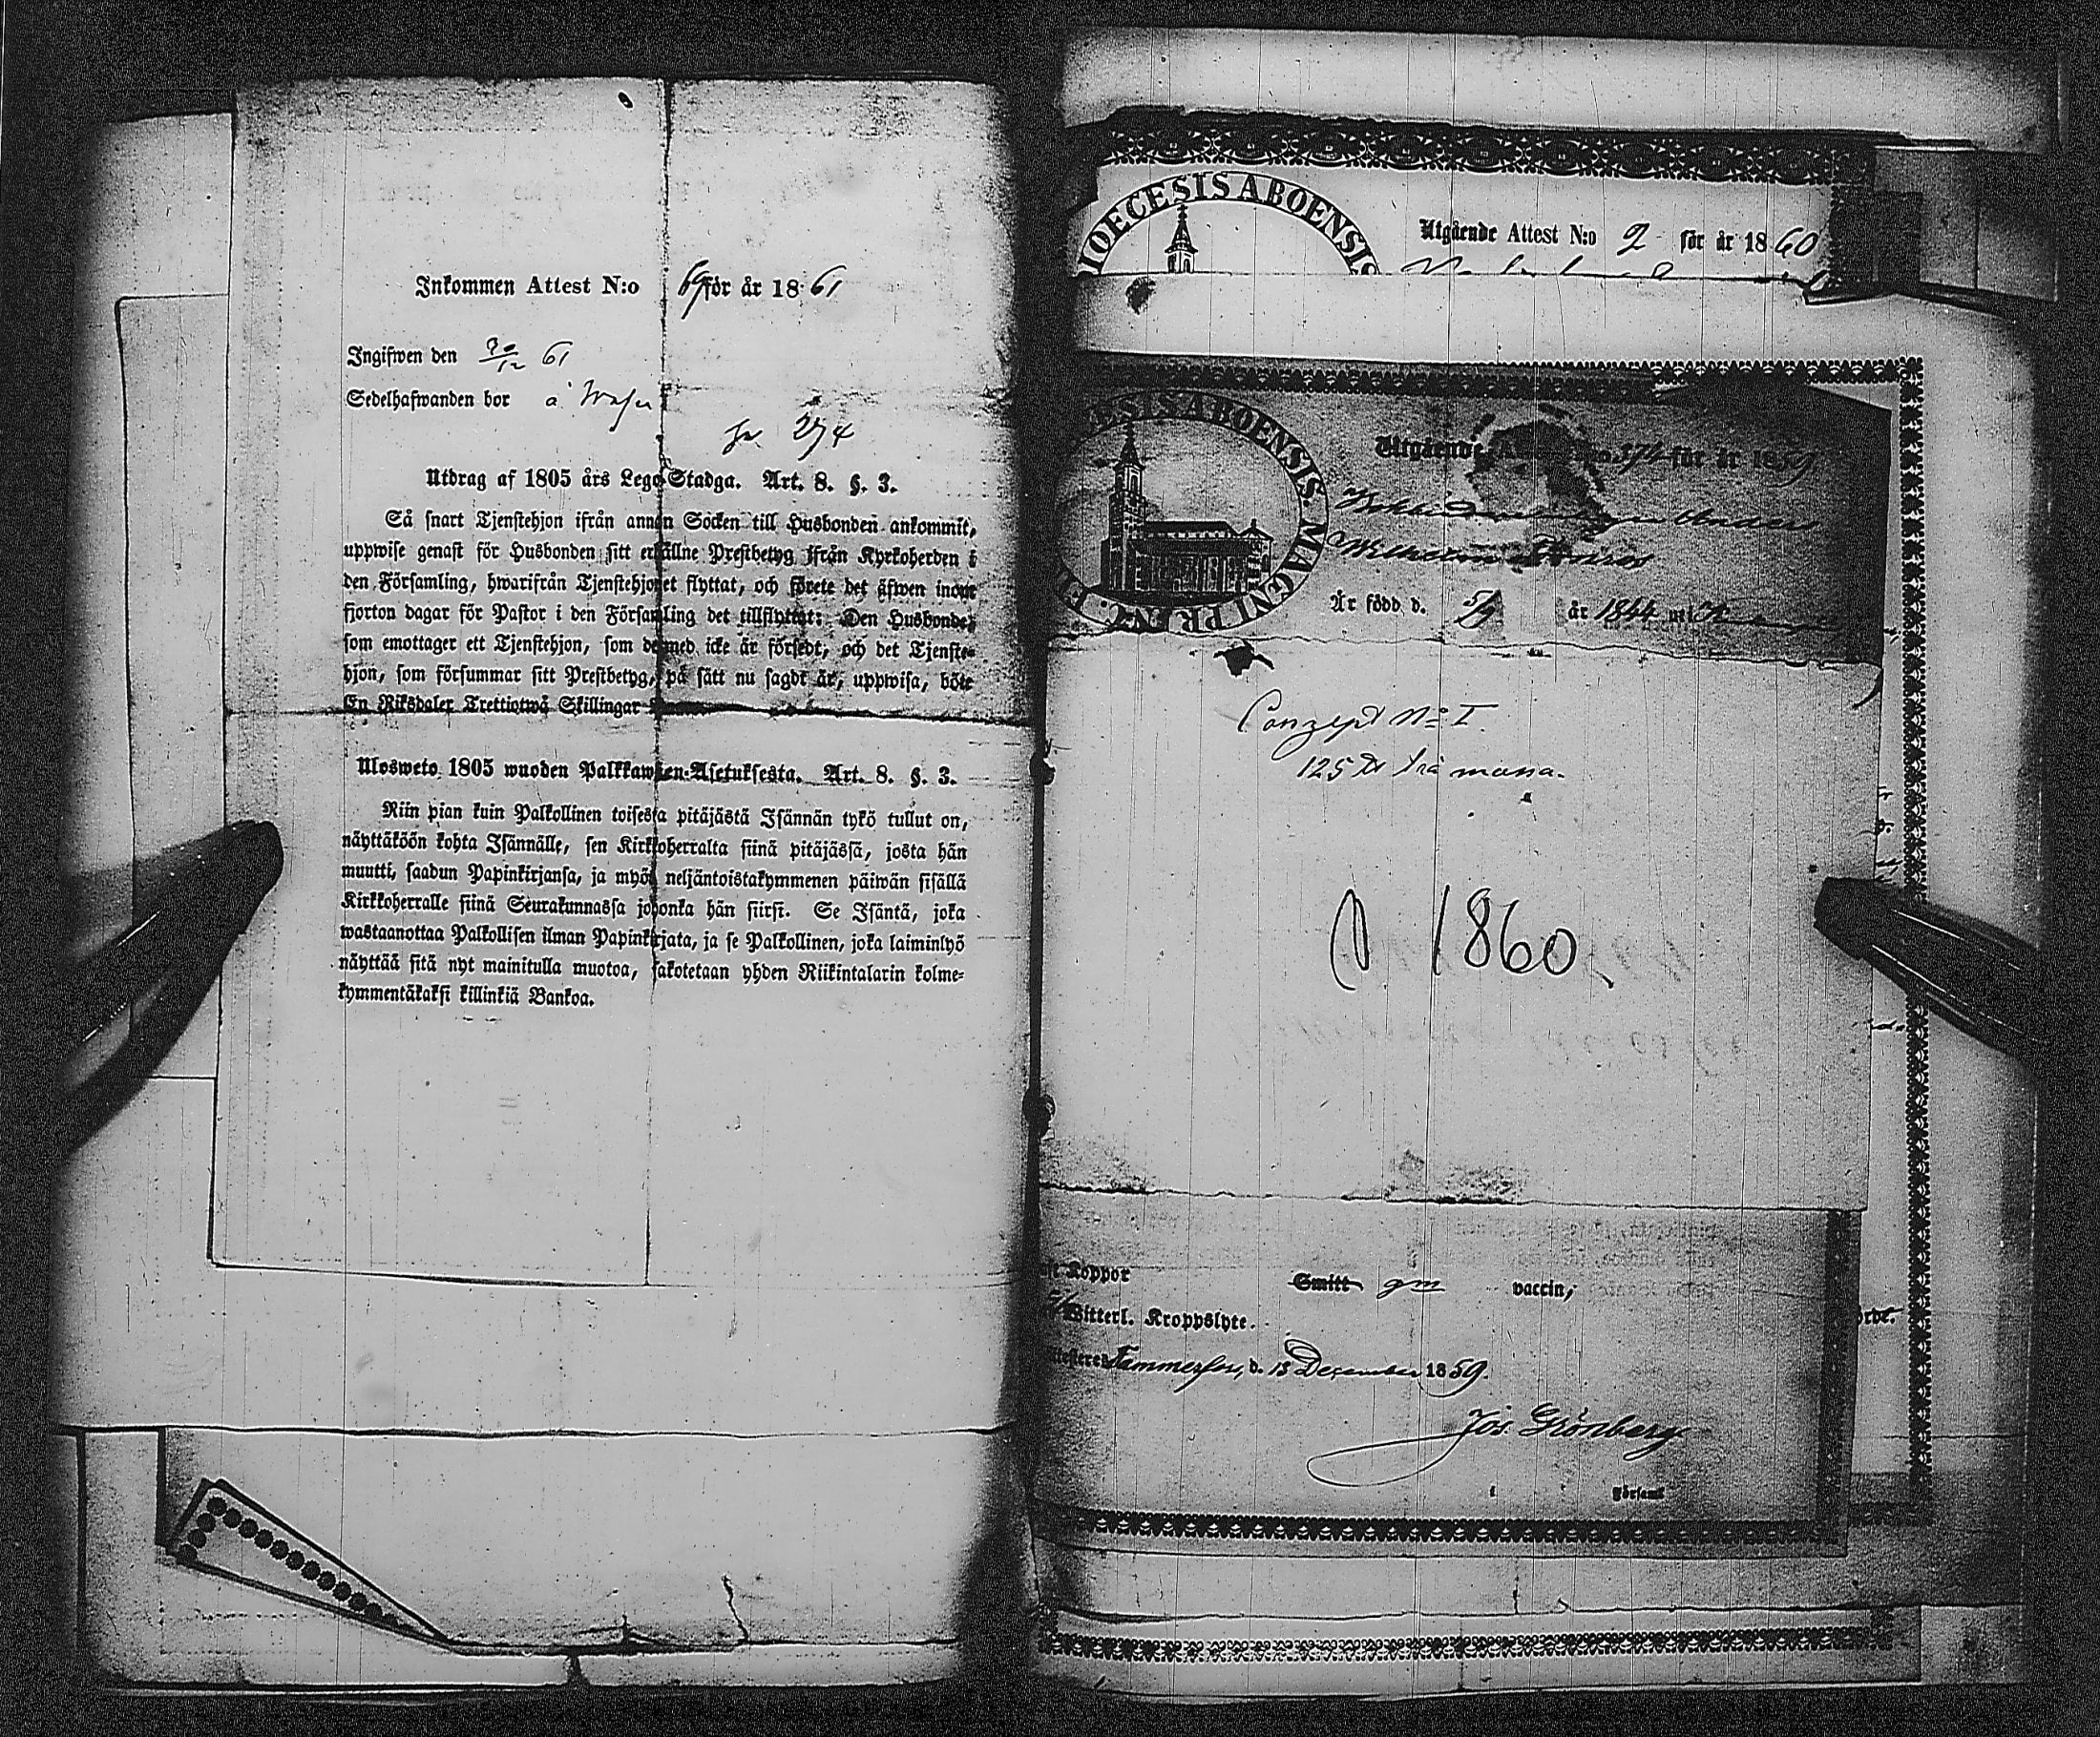 Inkommen Attest N:o 69 för år 1861
Ingifwen den 30/12 61
Sedelhafwanden bor å
274
Utdrag af 1805 års Lego-Stadga. Art. 8. §. 3.
Så snart Tjenstehjon ifrån annan Socken till Husbonden ankommit,
uppwise genast för Husbonden sitt erhållne Prestbetyg ifrån Kyrkoherden i
den Församling, hwarifrån Tjenstehjonet flyttat, och förete det äfwen inom
fjorton dagar för Pastor i den Församling det tillflyttat: Den Husbonde,
som emottager ett Tjenstehjon, som dermed icke är försedt, och det Tjenste-
hjon, som försummar sitt Prestbetyg, på sätt nu sagdt är, uppwisa, böte
En Riksdaler Trettiotwå Skillingar
Ulosweto 1805 wuoden Palkkawäen-Asetuksesta. Art. 8. §. 3.
Niin pian kuin Palkollinen toisesta pitäjästä Isännän tykö tullut on,
näyttäköön kohta Isännälle, sen Kirkkoherralta siinä pitäjässä, josta hän
muutti, saadun Papinkirjansa, ja myös neljäntoistakymmenen päiwän sisällä
Kirkkoherralle siinä Seurakunnassa johonka hän siirsi. Se Isäntä, joka
wastaanottaa Palkollisen ilman Papinkirjata, ja se Palkollinen, joka laiminlyö
näyttää sitä nyt mainitulla muotoa, sakotetaan yhden Riikintalarin kolme-
kymmentäkaksi killinkiä Bankoa.
DIOECESIS ABOENSIS
Utgående Attest N:o 2 för år 1860
OECESIS ABOENSIS. MAGNI PRINC.
Utgående 374 för år 1859
Anders
Wilhelm
Är född d. år 1844 uti
Conzept No I.
125
1860
Koppor Smitt gm vaccin;
Witterl. Kroppslyte.
Tammerfors, d. 13 December 1859.
Jos. Grönberg
i Församl.